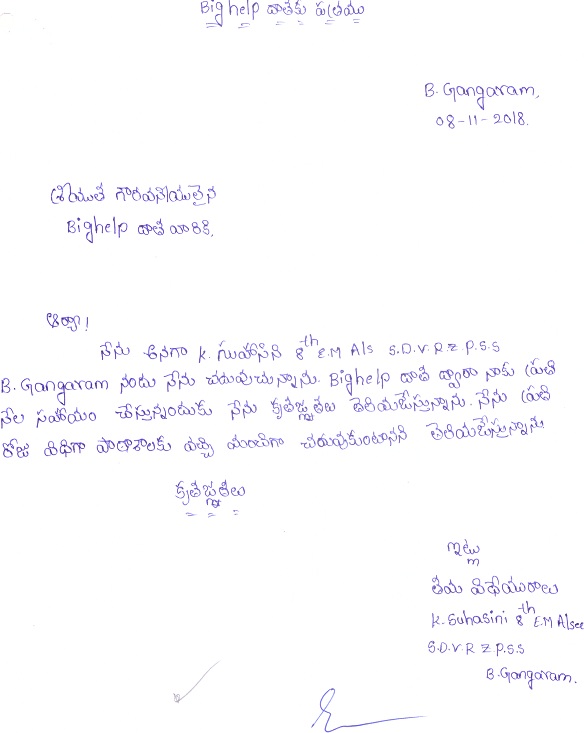 Big help దాతకు పత్రము
B. Gangaram,
08-11-2018.
శ్రీయుత గౌరవనీయులైన
Bighelp దాత వారికి,
ఆర్యా!
నేను అనగా K. సుహాసిని 8th E.M Als S.D.V.R Z P.S.S
B. Gangaram నందు నేను చదువుచున్నాను. Bighelp దాత ద్వారా నాకు ప్రతి
నెల సహాయం చేస్తున్నందుకు నేను కృతజ్ఞతలు తెలియజేస్తున్నాను. నేను ప్రతి
రోజు విధిగా పాఠాశాలకు వచ్చి మంచిగా చదువుకుంటానని తెలియజేస్తున్నాను
కృతజ్ఞతలు
ఇట్లు
తమ విధేయురాలు
K. Suhasini 8th E.M Alsec
S.D.V.R Z P.S.S
B. Gangaram.